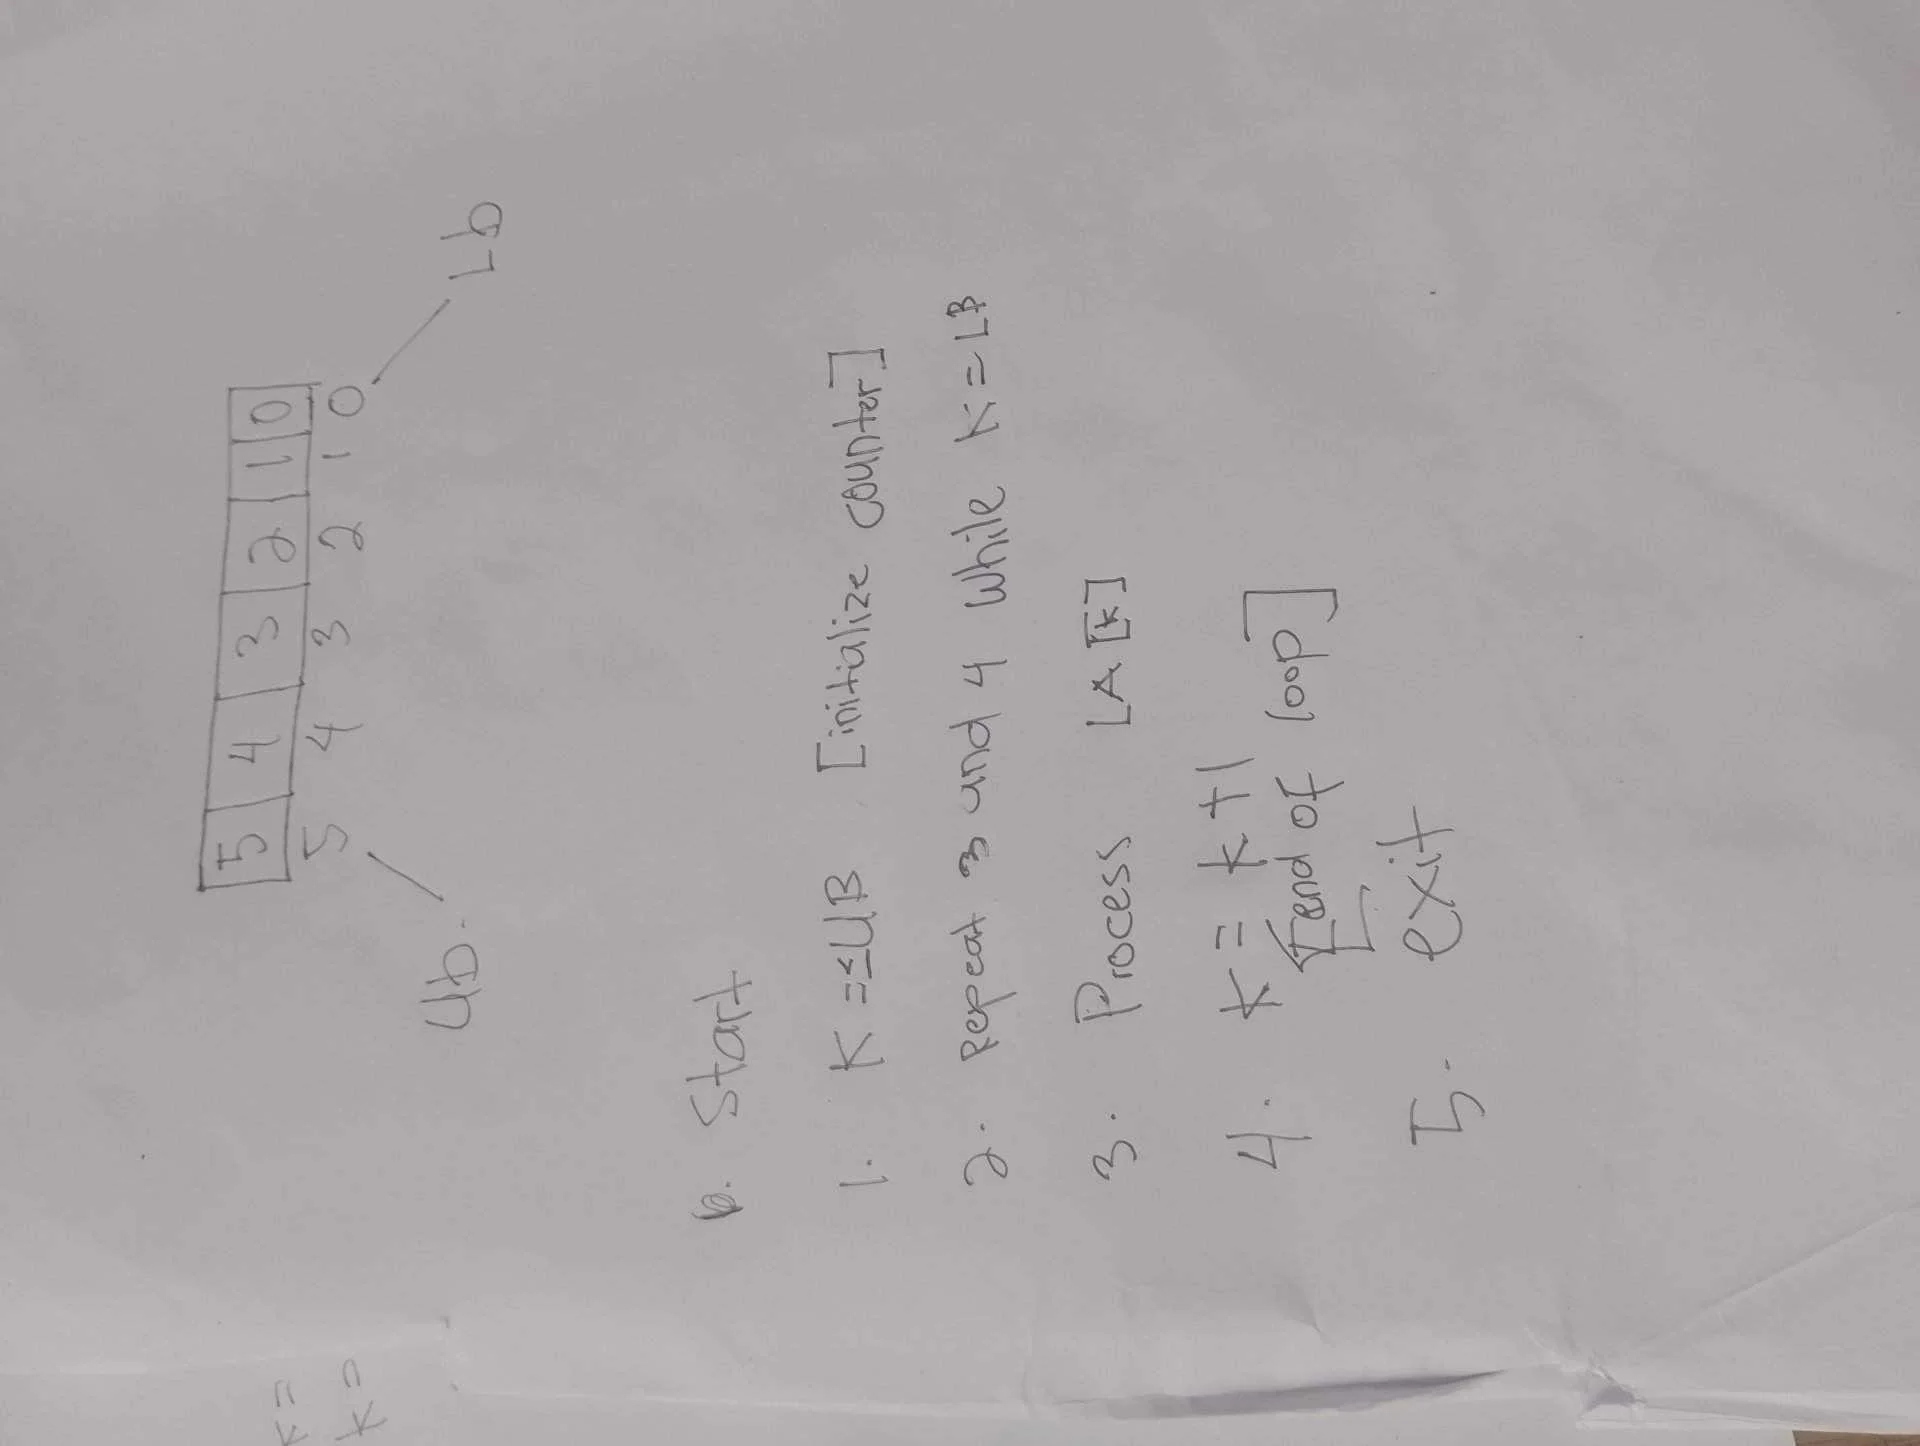 5 4 3 2 1 0
5 4 3 2 1 0
Ub. Lb
Start
1. K =≤UB [initialize counter]
2. Repeat 3 and 4 while K = LB
3. Process LA[K]
4. K = K+1
[end of loop]
5. exit
K =
K =